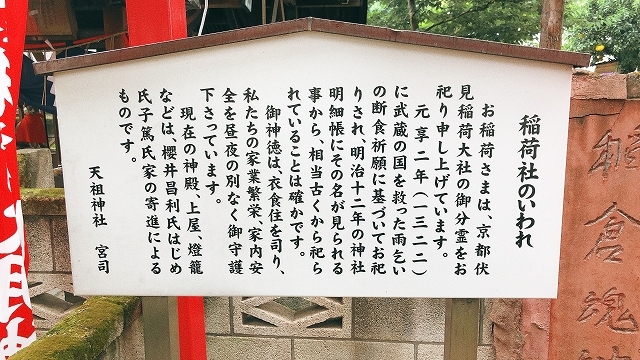 稲荷社のいわれ
お稲荷さまは、京都伏
見稲荷大社の御分霊をお
祀り申し上げています。
元享二年(一三二二)
に武蔵の国を救った雨乞い
の断食祈願に基づいてお祀
りされ、明治十二年の神社
明細帳にその名が見られる
事から、相当古くから祀ら
れていることは確かです。
御神徳は、衣食住を司り、
私たちの家業繁栄、家内安
全を昼夜の別なく御守護
下さっています。
現在の神殿、上屋、燈籠
などは、櫻井昌利氏はじめ
氏子篤氏家の寄進による
ものです。
天祖神社 宮司
倉魂